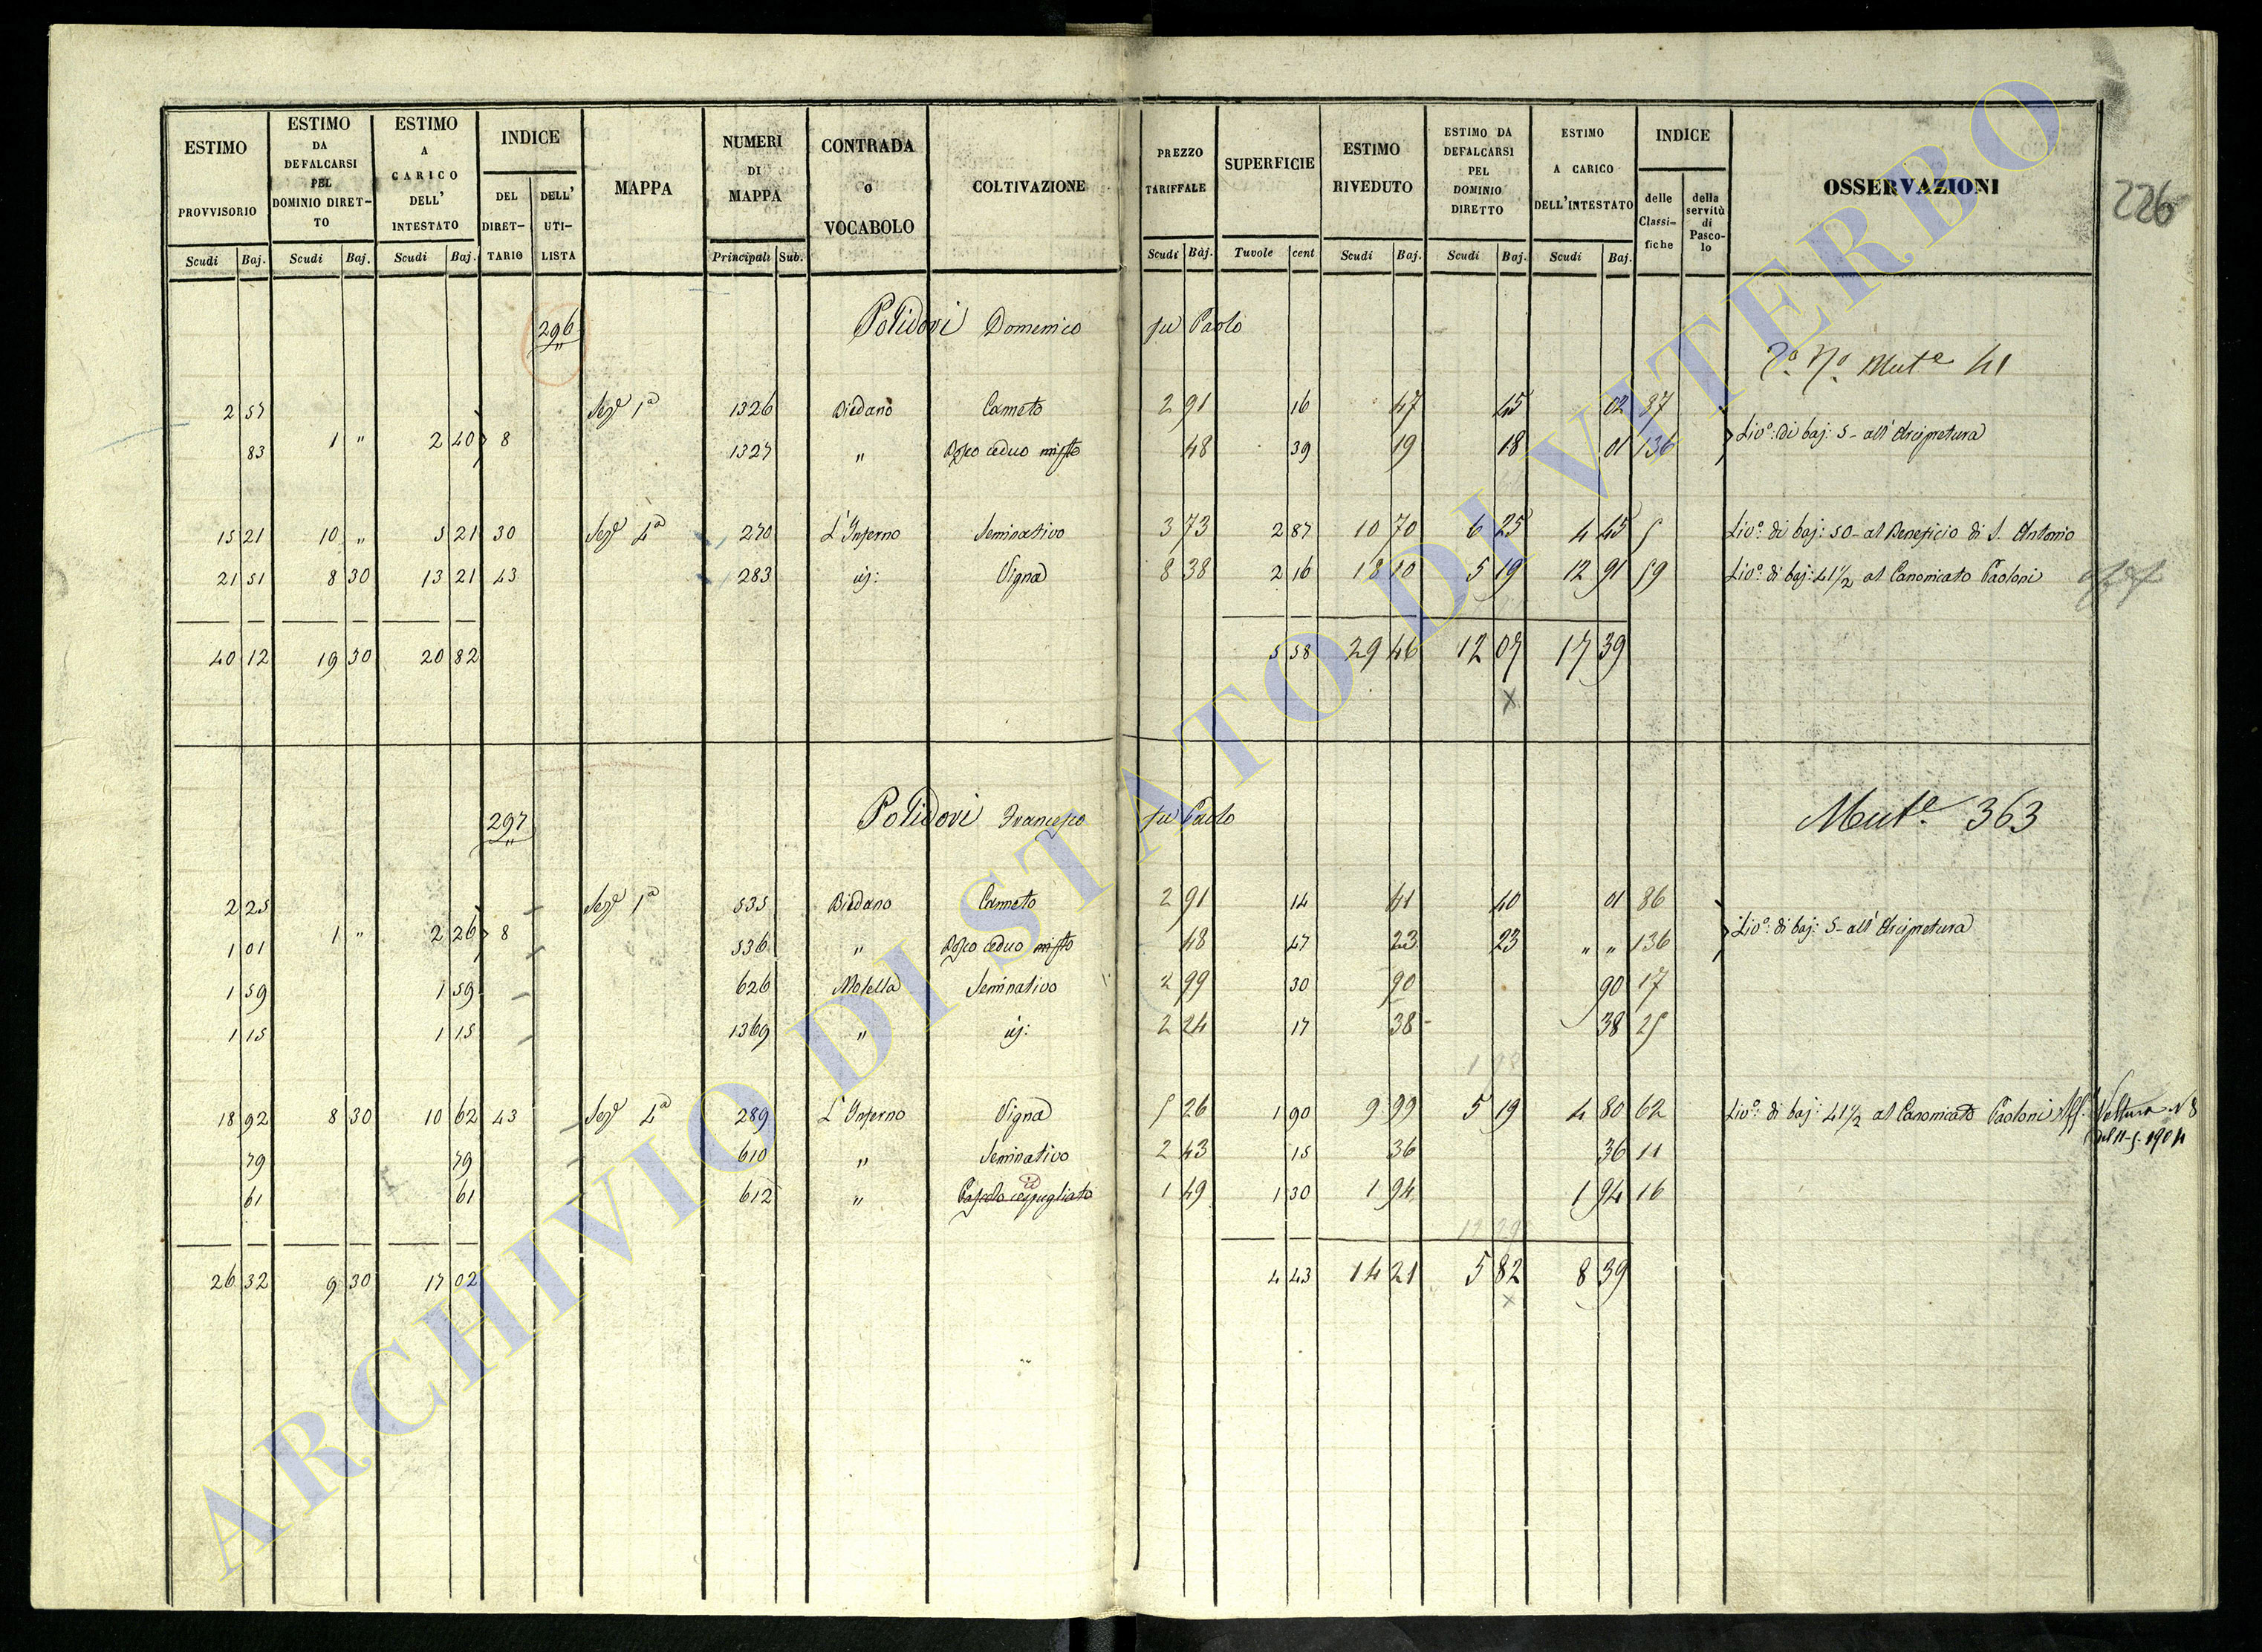 ESTIMO PROVVISORIO Scudi Baj.
ESTIMO DA DEFALCARSI PEL DOMINIO DIRET-TO Scudi Baj.
ESTIMO A CARICO DELL' INTESTATO Scudi Baj.
INDICE DEL DIRET-TARIO DELL' UTI-LISTA
MAPPA
NUMERI DI MAPPA Principali Sub.
CONTRADA O VOCABOLO
COLTIVAZIONE
PREZZO TARIFFALE Scudi Baj.
SUPERFICIE Tavole cent
ESTIMO RIVEDUTO Scudi Baj.
ESTIMO DA DEFALCARSI PEL DOMINIO DIRETTO Scudi Baj.
ESTIMO A CARICO DELL'INTESTATO Scudi Baj.
INDICE delle Classi-fiche della servitù di Pasco-lo
OSSERVAZIONI
226
296 Polidori Domenico fu Paolo
Mut.e 41
2 57 Sez.e 1a 1326 Biedano Canneto 2 91 16 47 45 02 87
1 " 2 40 8 Liv.o: di baj: 5 - all' Arcipretura
83 1327 " Bosco ceduo misto 48 39 19 18 01 136
15 21 10 " 5 21 30 Sez.e 4a 270 L'Inferno Seminativo 3 73 2 87 10 70 6 25 4 45 5 Liv.o: di baj: 50 - al Beneficio di S. Antonio
21 51 8 30 13 21 43 283 id: Vigna 8 38 2 16 18 10 5 19 12 91 59 Liv.o: di baj: 41 1/2 al Canonicato Paoloni
40 12 19 30 20 82 5 58 29 46 12 07 17 39
x
297 Polidori Francesco fu Paolo Mut.e 363
2 25 Sez.e 1a 535 Biedano Canneto 2 91 14 41 40 01 86
1 " 2 26 8 Liv.o: di baj: 5 - all' Arcipretura
1 01 536 " Bosco ceduo misto 48 47 23 23 " " 136
1 59 1 59 626 Molella Seminativo 2 99 30 90 90 17
1 15 1 15 1369 " id: 2 24 17 38 38 25
18 92 8 30 10 62 43 Sez.e 4a 289 L'Inferno Vigna 5 26 1 90 9 99 5 19 4 80 62 Liv.o: di baj: 41 1/2 al Canonicato Paoloni Voltura N 8
del 11-5-1904
79 79 610 " Seminativo 2 43 15 36 36 11
61 61 612 " Pascolo cespugliato id 1 49 1 30 1 94 1 94 16
26 32 9 30 17 02 4 43 14 21 5 82 8 39
x
ARCHIVIO DI STATO DI VITERBO